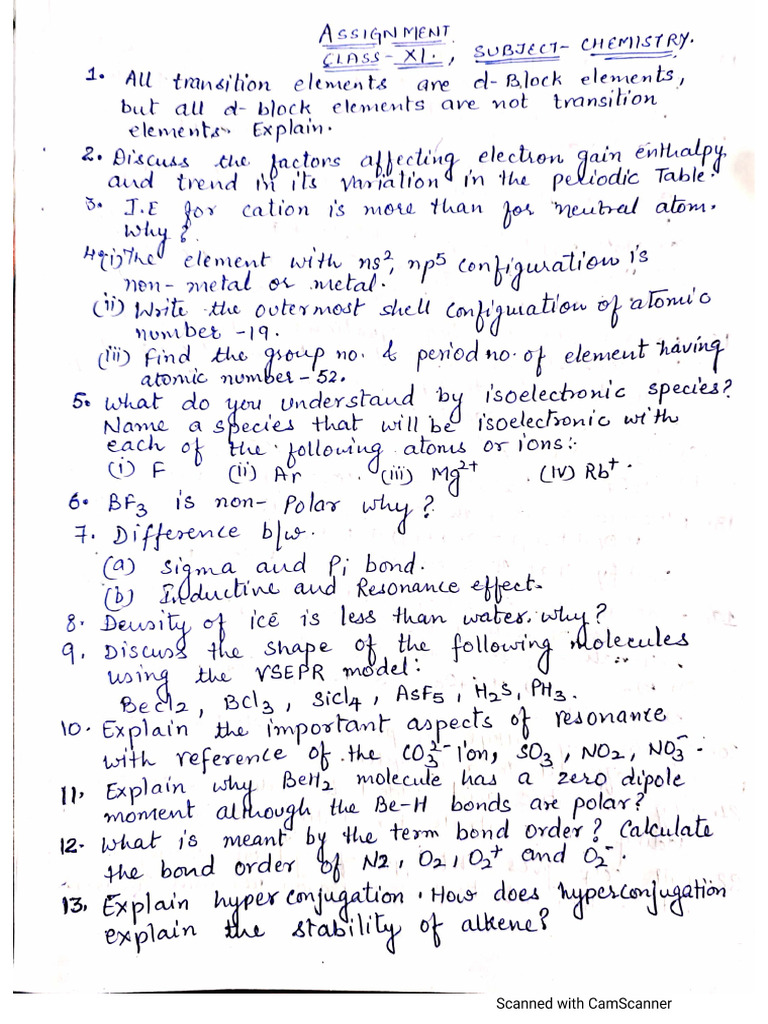 ASSIGNMENT
CLASS-XI., SUBJECT- CHEMISTRY.
1. All transition elements are d-Block elements,
but all d-block elements are not transition
elements. Explain.
2. Discuss the factors affecting electron gain enthalpy
and trend in its variation in the periodic Table.
3. I.E for cation is more than for neutral atom.
Why?
4.(i) The element with ns², np⁵ configuration is
non-metal or metal.
(ii) Write the outermost shell configuration of atomic
number -19.
(iii) Find the group no. & period no. of element having
atomic number-52.
5. What do you understand by isoelectronic species?
Name a species that will be isoelectronic with
each of the following atoms or ions:-
(i) F (ii) Ar (iii) Mg²⁺ (iv) Rb⁺.
6. BF₃ is non-Polar why?
7. Difference b/w.
(a) Sigma and Pi bond.
(b) Inductive and Resonance effect.
8. Density of ice is less than water. why?
9. Discuss the shape of the following molecules
using the VSEPR model:
BeCl₂, BCl₃, SiCl₄, AsF₅, H₂S, PH₃.
10. Explain the important aspects of resonance
with reference of the CO₃²⁻ ion, SO₃, NO₂, NO₃⁻.
11. Explain why BeH₂ molecule has a zero dipole
moment although the Be-H bonds are polar?
12. What is meant by the term bond order? Calculate
the bond order of N₂, O₂, O₂⁺ and O₂⁻.
13. Explain hyperconjugation. How does hyperconjugation
explain the stability of alkene?
Scanned with CamScanner